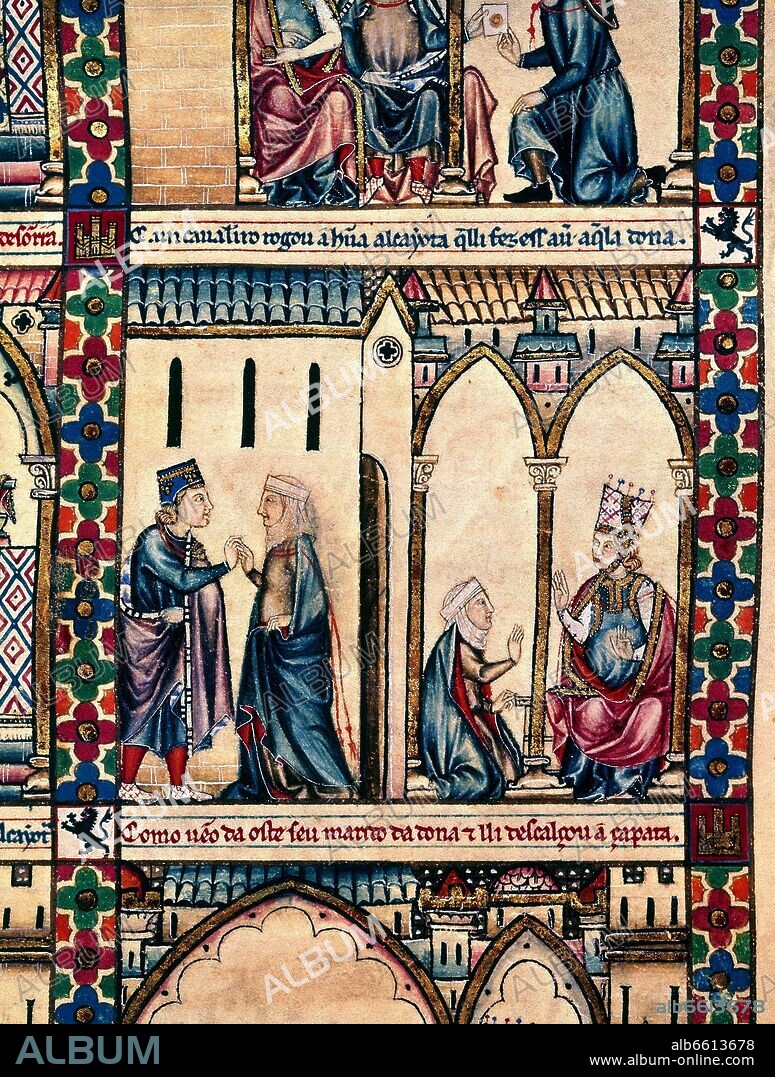 desonrra.
C. un cavaleiro rogou a hũa alcayota q̃lli fezess au' aq̃la dona.
alcayot
Como uẽo da oste seu marito da dona ⁊ lli descalçou a çapata.
ALBUM
alb6613678
ALBUM
alb6613678
www.album-online.com